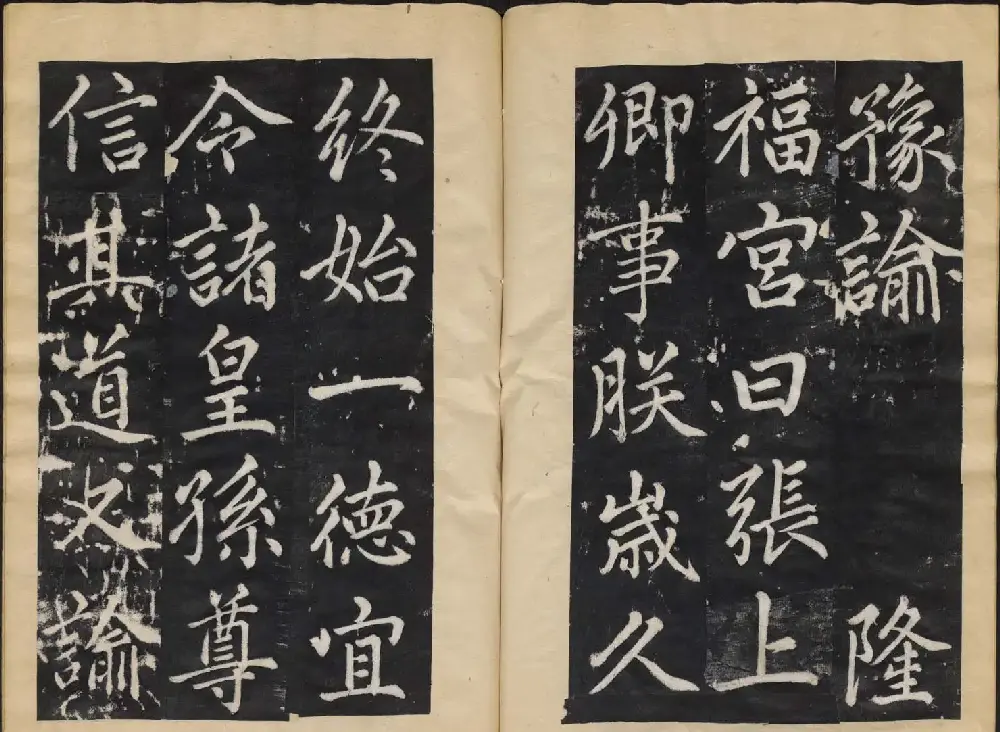 豫諭 隆
福宮曰張上
卿事朕歲久
終始一德宜
令諸皇孫尊
信其道又諭